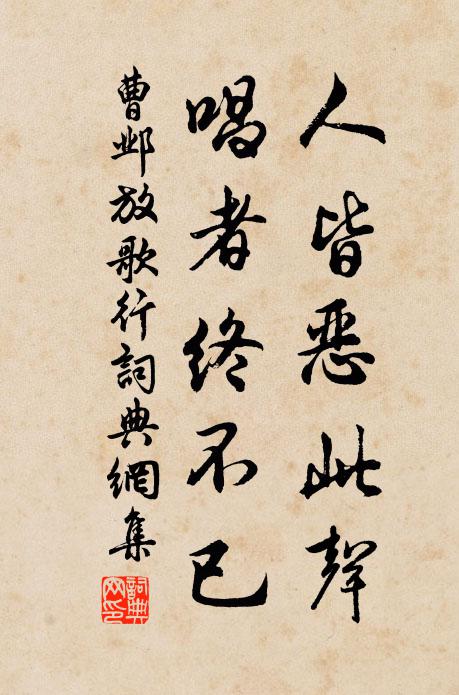 人皆恶此聲
唱者终不已
曹邺放歌行詞典網集
詞典网印